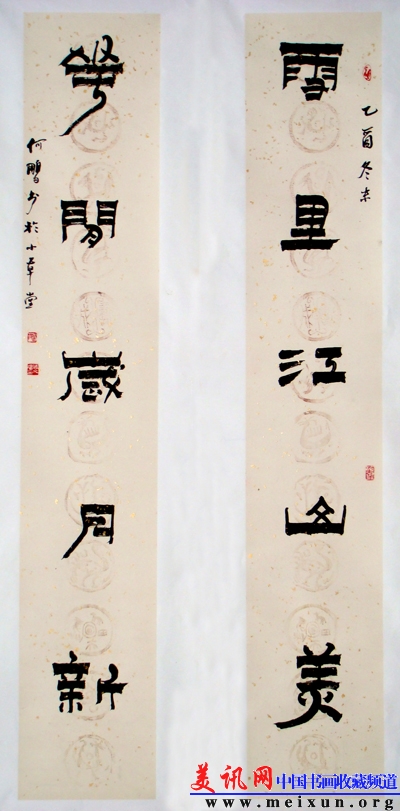 乙酉冬末
雪里江山美
花開歲月新
何鵬书於小草堂
美讯网 中国书画收藏频道
www.meixun.org